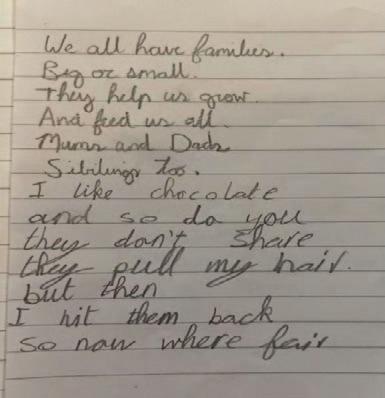 We all have families.
Big or small.
They help us grow.
And feed us all.
Mums and Dads
Sibilings Too.
I like chocolate
and so do you
they don't share
they pull my hair.
but then
I hit them back
so now where fair